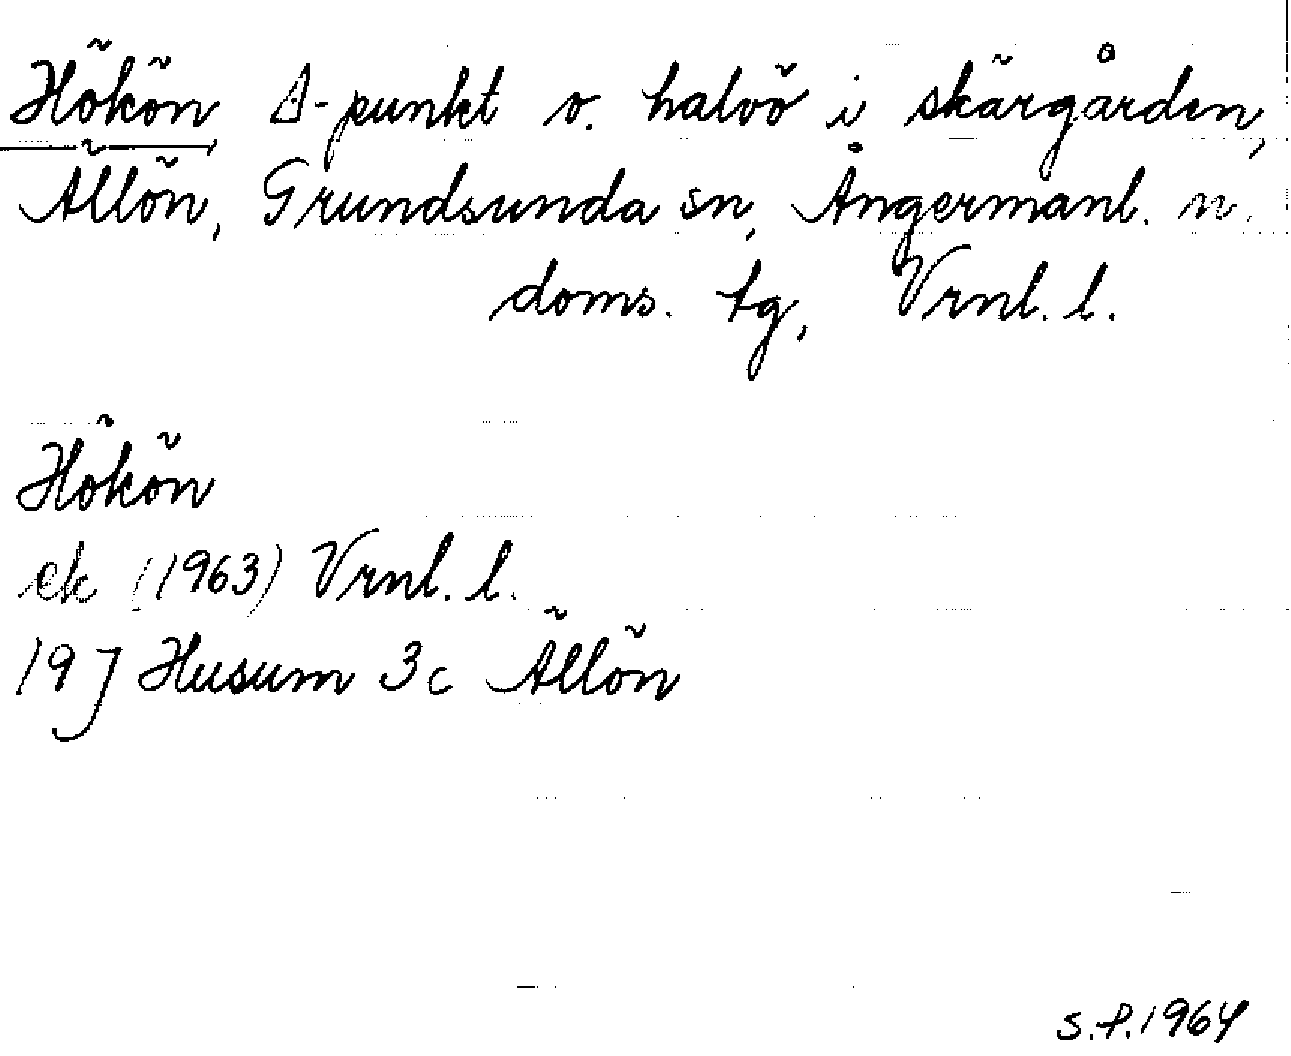 Hökön, Δ-punkt o. halvö i skärgården,
Ällön, Grundsunda sn, Ångermanl. n.
doms. tg, Vrnl. l.
Hökön
ek (1963) Vrnl. l.
19 J Husum 3c Ällön
S.P. 1964